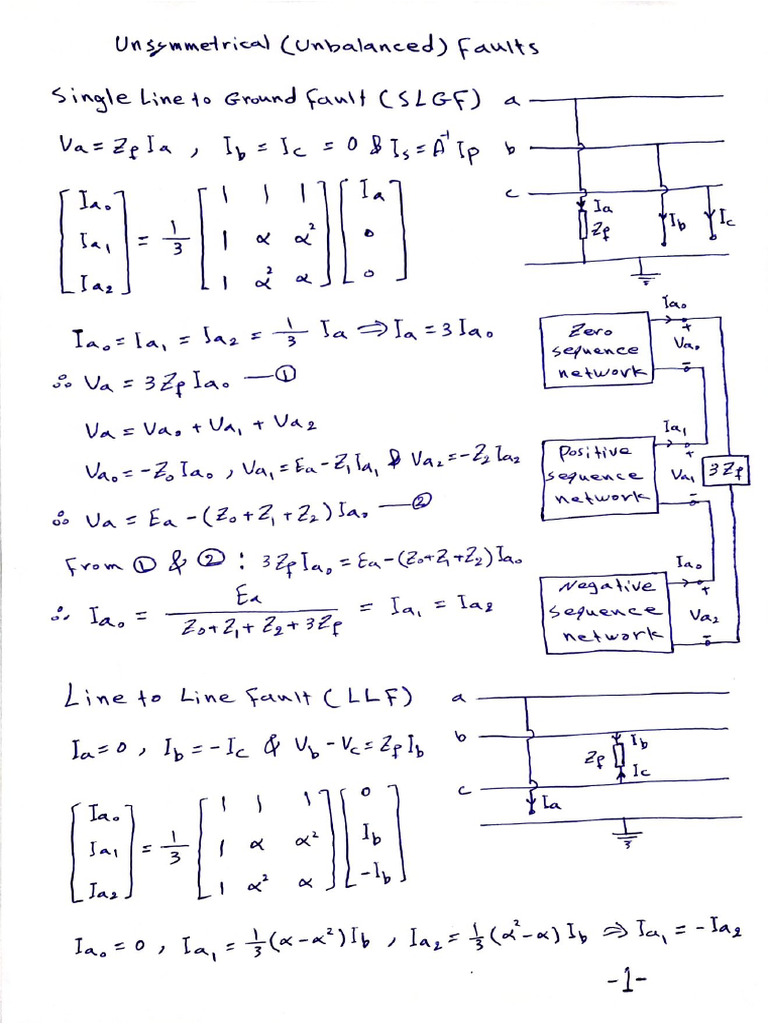 Unsymmetrical (Unbalanced) Faults
Single Line to Ground Fault (SLGF)
a
Va = Zf Ia , Ib = Ic = 0 & Is = A⁻¹ Ip
b
c
[Ia₀ Ia₁ Ia₂] = 1/3 [1 1 1; 1 α α²; 1 α² α] [Ia 0 0]
Ia
Zf
Ib
Ic
Ia₀ = Ia₁ = Ia₂ = 1/3 Ia ⇒ Ia = 3 Ia₀
∴ Va = 3Zf Ia₀ — ①
Va = Va₀ + Va₁ + Va₂
Va₀ = -Z₀ Ia₀ , Va₁ = Ea - Z₁ Ia₁ & Va₂ = -Z₂ Ia₂
∴ Va = Ea - (Z₀ + Z₁ + Z₂) Ia₀ — ②
From ① & ② : 3Zf Ia₀ = Ea - (Z₀+Z₁+Z₂) Ia₀
∴ Ia₀ = Ea / (Z₀ + Z₁ + Z₂ + 3Zf) = Ia₁ = Ia₂
Zero
sequence
network
Ia₀
+
Va₀
-
Positive
sequence
network
Ia₁
+
Va₁
-
3Zf
Negative
sequence
network
Ia₀
+
Va₂
-
Line to Line Fault (LLF)
a
Ia = 0 , Ib = -Ic & Vb - Vc = Zf Ib
b
c
Zf
Ib
Ic
Ia
[Ia₀ Ia₁ Ia₂] = 1/3 [1 1 1; 1 α α²; 1 α² α] [0 Ib -Ib]
Ia₀ = 0 , Ia₁ = 1/3 (α - α²) Ib , Ia₂ = 1/3 (α² - α) Ib ⇒ Ia₁ = - Ia₂
-1-